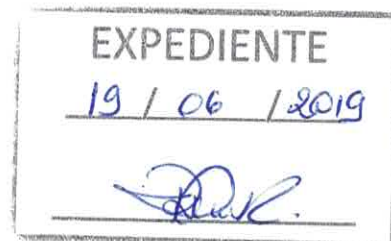 EXPEDIENTE
19 / 06 / 2019